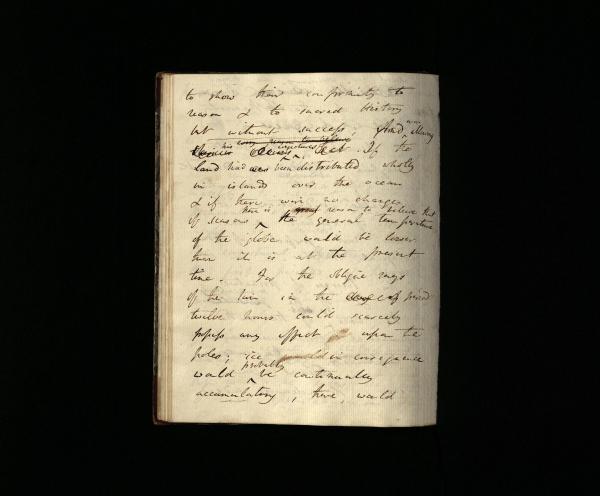 to show their conformity to
reason & to sacred History
but without success;
If the
Land had been distributed wholly
in islands over the ocean
& if there were no changes
there is great reason to believe that
of seasons the general temperature
of the globe would be lower
than it is at the present
time. For the oblique rays
of the sun in the period
twelve hours could scarcely
possess any effect upon the
poles; ice in consequence
would probably be continually
accumulating, there would